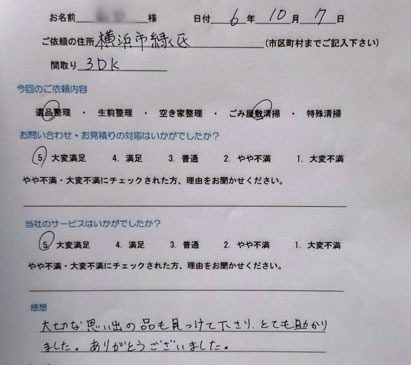 お名前 様 日付 6年 10月 7日
ご依頼の住所 横浜市緑区 (市区町村までご記入下さい)
間取り 3DK
今回のご依頼内容
遺品整理 ・ 生前整理 ・ 空き家整理 ・ ごみ屋敷清掃 ・ 特殊清掃
お問い合わせ・お見積りの対応はいかがでしたか?
5. 大変満足 4. 満足 3. 普通 2. やや不満 1. 大変不満
やや不満・大変不満にチェックされた方、理由をお聞かせください。
当社のサービスはいかがでしたか?
5. 大変満足 4. 満足 3. 普通 2. やや不満 1. 大変不満
やや不満・大変不満にチェックされた方、理由をお聞かせください。
感想
大切な思い出の品も見つけて下さり、とても助かり
ました。ありがとうございました。